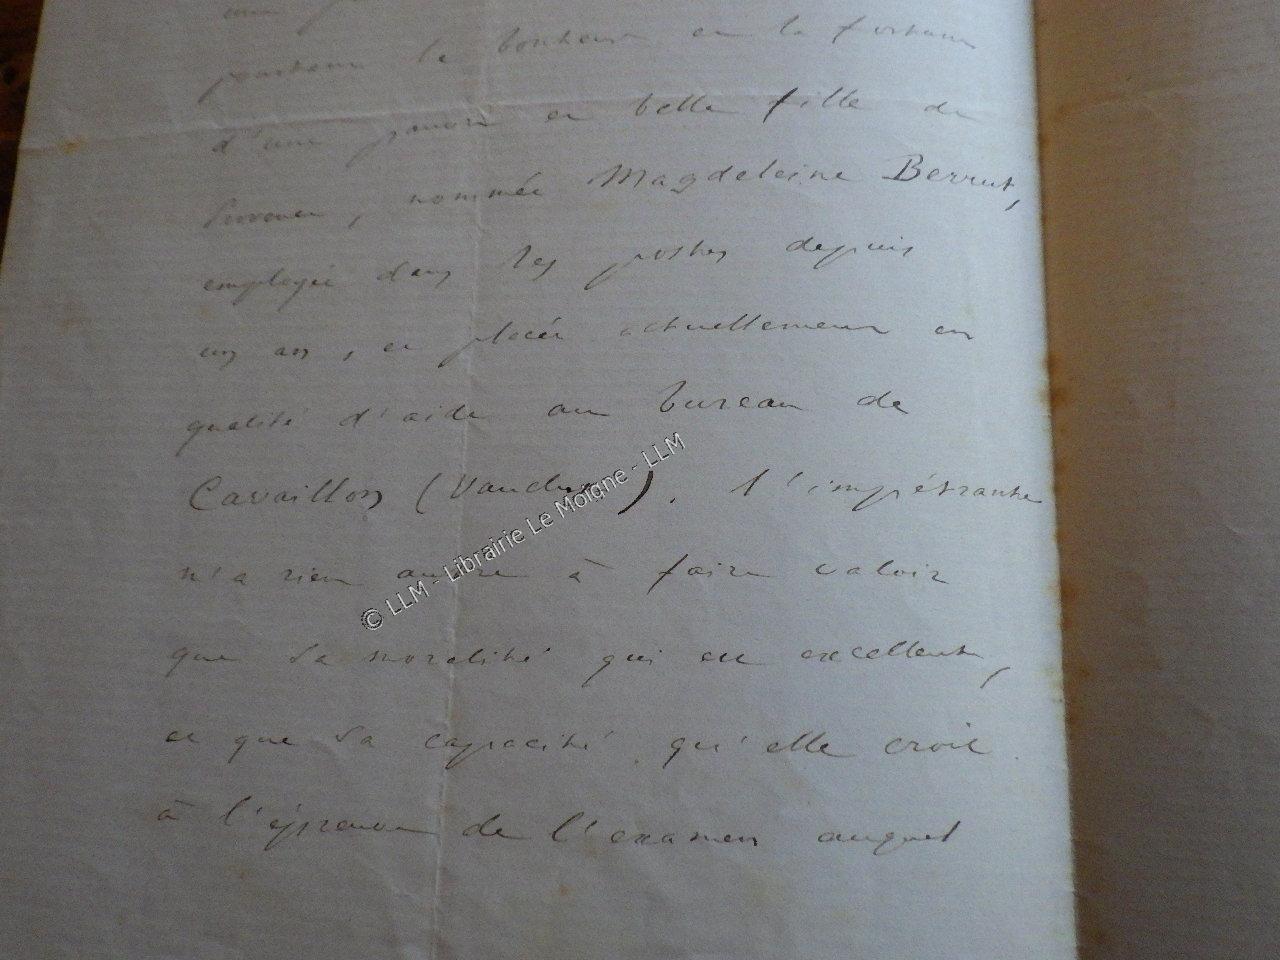 pourtant le bonheur et la fortune
d'une pauvre et belle fille de
Provence, nommée Magdeleine Berrut,
employée dans les postes depuis
un an, et placée actuellement en
qualité d'aide au bureau de
Cavaillon (Vaucluse). l'impétrante
n'a rien autre à faire valoir
que sa moralité qui est excellente,
et que sa capacité qu'elle croit
à l'épreuve de l'examen auquel
© LLM - Librairie Le Moigne - LLM